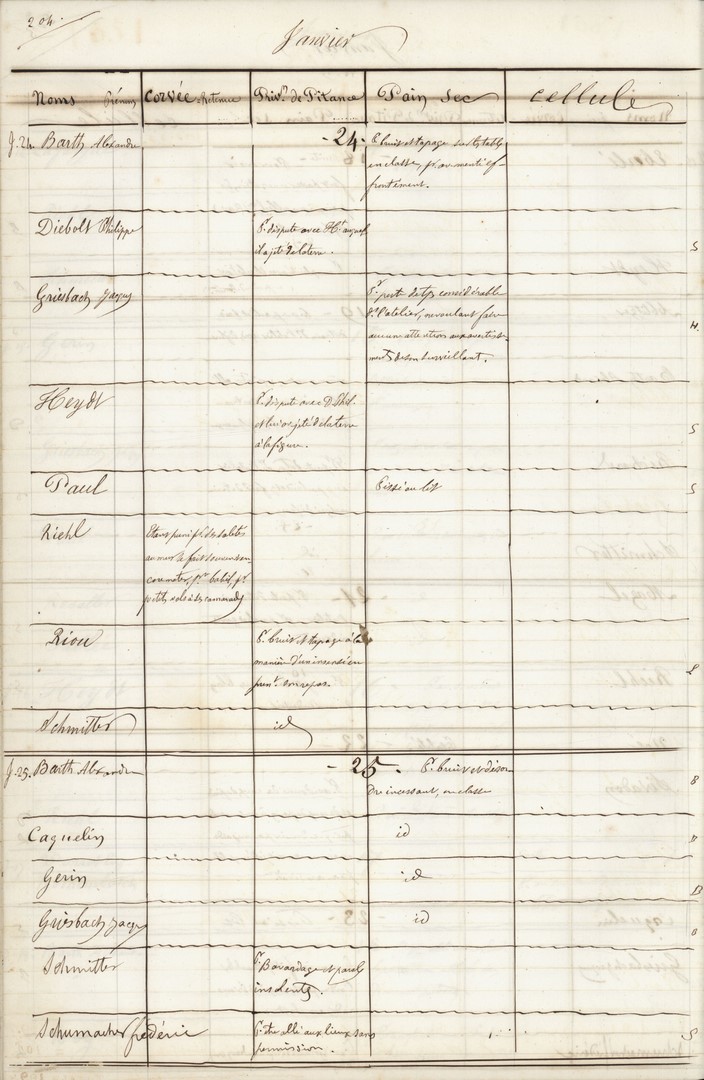 204.
Janvier
Noms Prénoms Corvée Retenue Priv.on de Pitance Pain sec cellule
J. 24. Barth Alexandre - 24. - Pr. bruit et tapage sur la table
en classe, pr. avoir menti ef-
frontément.
Diebolt Philippe Pr. dispute avec Ht. auquel
il a jeté de la terre.
Griesbach Jacques Pr. perte de tps considérable
ds. l'atelier, ne voulant faire
aucune attention aux avertisse-
ments de son surveillant.
Heydt Pr. dispute avec D. Phil.
et lui avoir jeté de la terre
à la figure.
Paul Pissé au lit
Riehl Etant puni pr. des saletés
au mur
pr. babil, pr.
petits vols à ses camarades
Riou Pr. bruit et tapage à la
manière d'un insensé en
pent. son repas.
Schmitter id
J. 25. Barth Alexandre - 25. Pr. bruit et désor-
dre incessant, en classe
Caquelin id
Gerin id
Griesbach Jacques id
Schmitter Pr. Bavardage et parol.
insolentes.
Schumacher frédéric Pr. être allé aux lieux sans
permission.